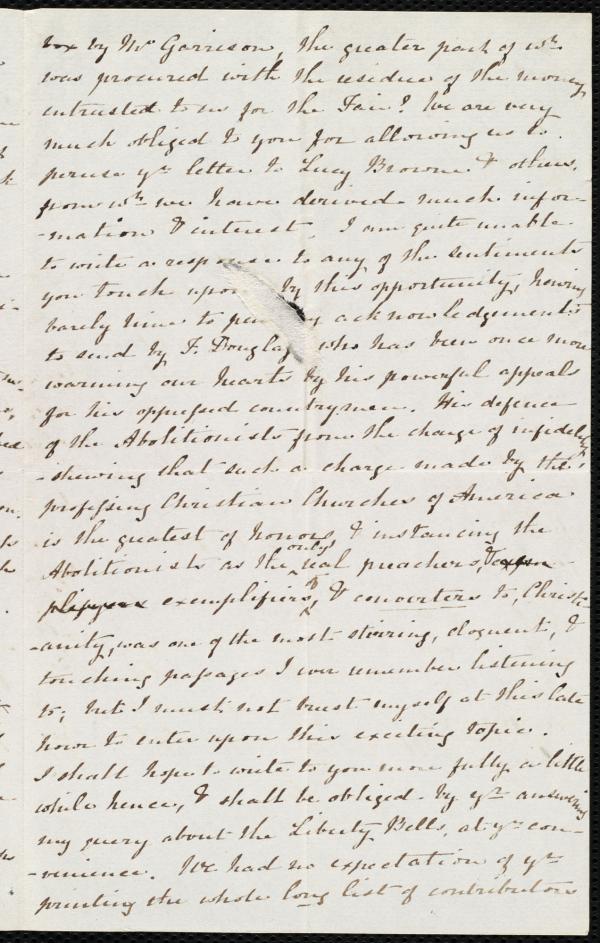 box by Mr Garrison, the greater part of wh.
was procured with the residue of the money
intrusted to us for the Fair? We are very
much obliged to you for allowing us to
peruse yr letter to Lucy Browne & others,
from wh we have derived much infor-
-mation & interest. I am quite unable
to write a response to any of the sentiments
you touch upon by this opportunity, having
barely time to pen my acknowledgements
to send by F. Douglass who has been once more
warming our hearts by his powerful appeals
for his oppressed countrymen. His defence
of the Abolitionists from the charge of infidelity
-shewing that such a charge made by the
professing Christian Churches of America
is the greatest of honors, & instancing the
Abolitionists as the only real preachers,
exemplifiers, & converters to, Christi-
-anity, was one of the most stirring, eloquent, &
touching passages I ever remember listening
to; but I must not trust myself at this late
hour to enter upon this exciting topic.
I shall hope to write to you more fully a little
while hence, & shall be obliged by yr answering
my query about the Liberty Bells, at yr con-
-venience. We had no expectation of yr
printing the whole long list of contributors